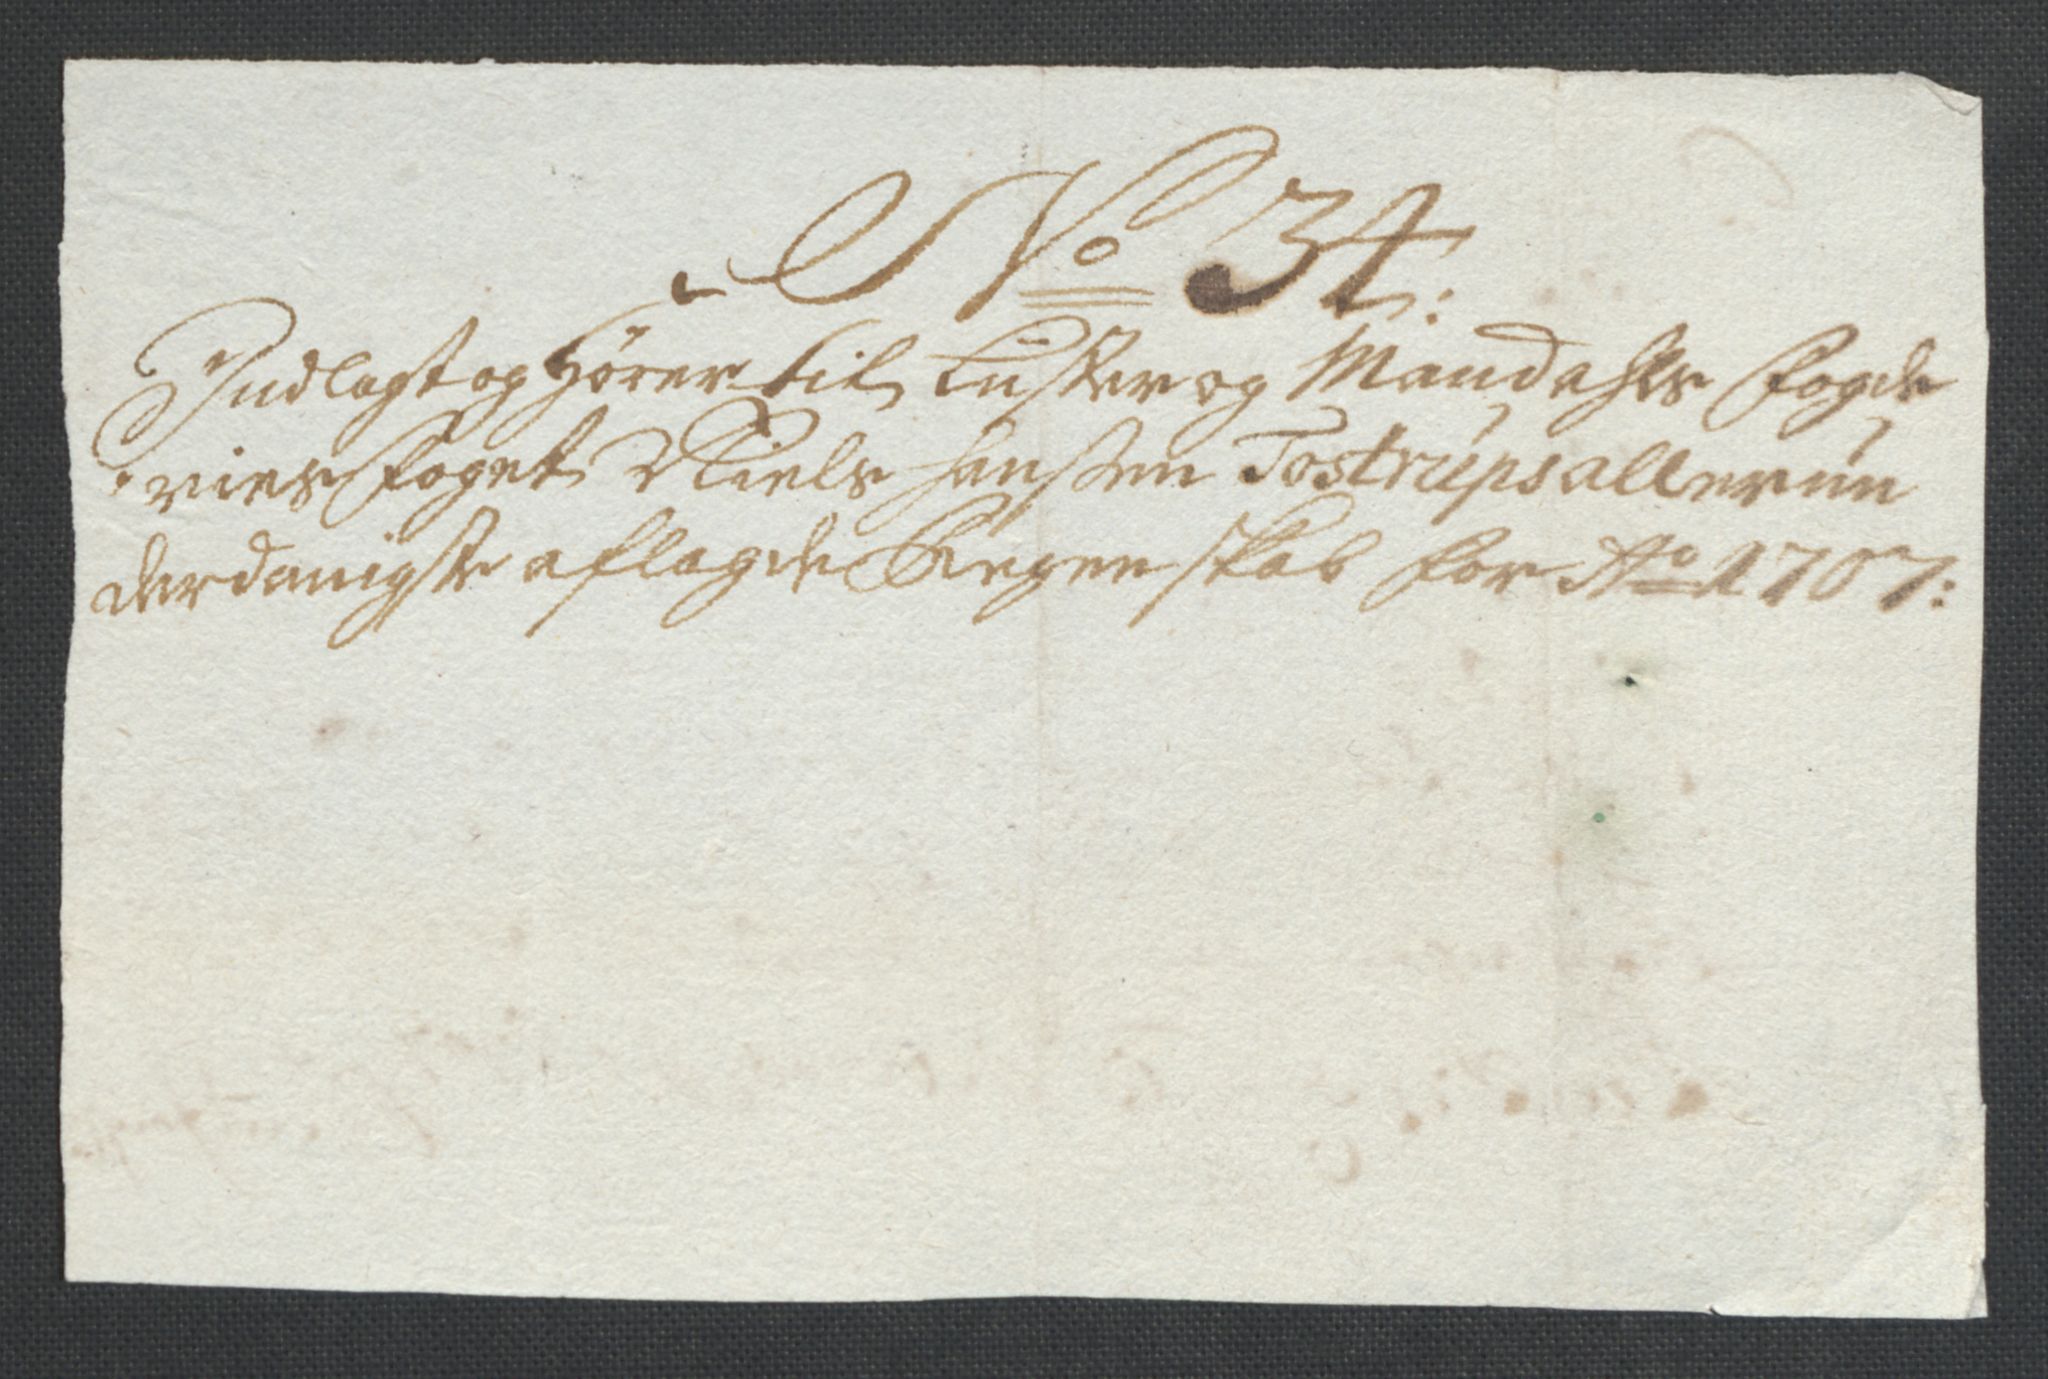 No 34:
Indlagt og Hörer til Lister og Mandahls Fogde
ries Foget Niels Hanssen Tostrups allerun
derdanigste aflagde Regenskab for Ao 1707: